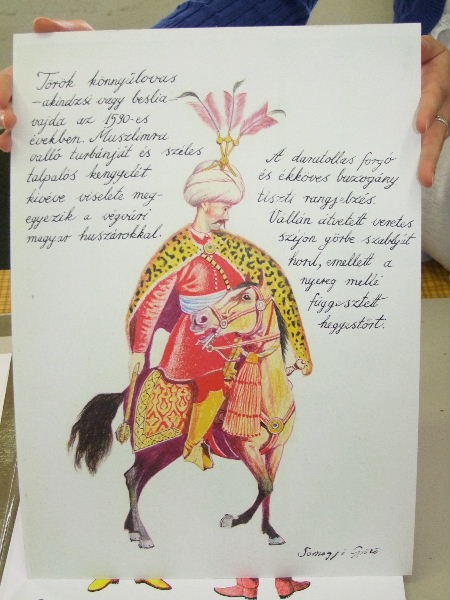 Török könnyűlovas
-akindzsi vagy beslia-
vajda az 1590-es
években. Muszlimra
valló turbánját és széles
talpalós kengyelét
kivéve viselete meg-
egyezik a végvári
magyar huszárokkal.
A darutollas forgó
és ékköves buzogány
tiszti rangjelzés.
Vállán átvetett veretes
szíjon görbe szablyát
hord, emellett a
nyereg mellé
függesztett
hegyestőrt.
Somogyi Győző